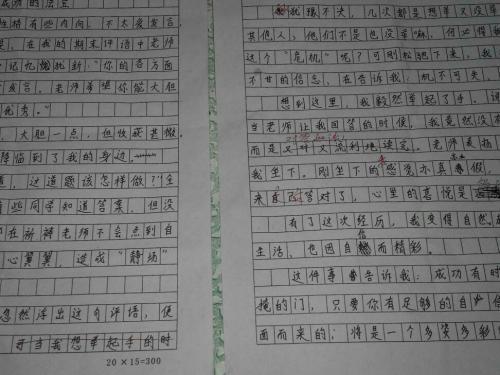 成功的法宝
性格有些内向，不太爱发言
是，在我的期末评语中老师
记忆犹新："你的各方面
发言。老师希望你能大胆
优秀。"
大胆一点，但收获甚微。
降临到了我的身边
道，这道题该怎样做？"全
有些同学知道答案，但没
都在祈祷老师不会点到自
心翼翼，造成"静场"
忽然浮出这句评语，便
可当我想举起手的时
20×15=300
犹豫不决，几次都是想举又没举
其他人，他们不是也没举嘛，何必得
这个"危机"呢？可刚松驰下来，我
不甘的信念，在告诉我：机不可失，
想到这里，我毅然举起了手。
当老师让我回答的时候，我竟然没有
而是又对又流利地读完。老师表扬
我坐下。刚坐下的感觉亦真亦假，
来自己答对了，心里的喜悦是
有了这次经历，我变得自然
生活，也因自信而精彩。
这件事告诉我：成功有时
掩的门，只要你有足够的自信
面而来的，将是一个多姿多彩